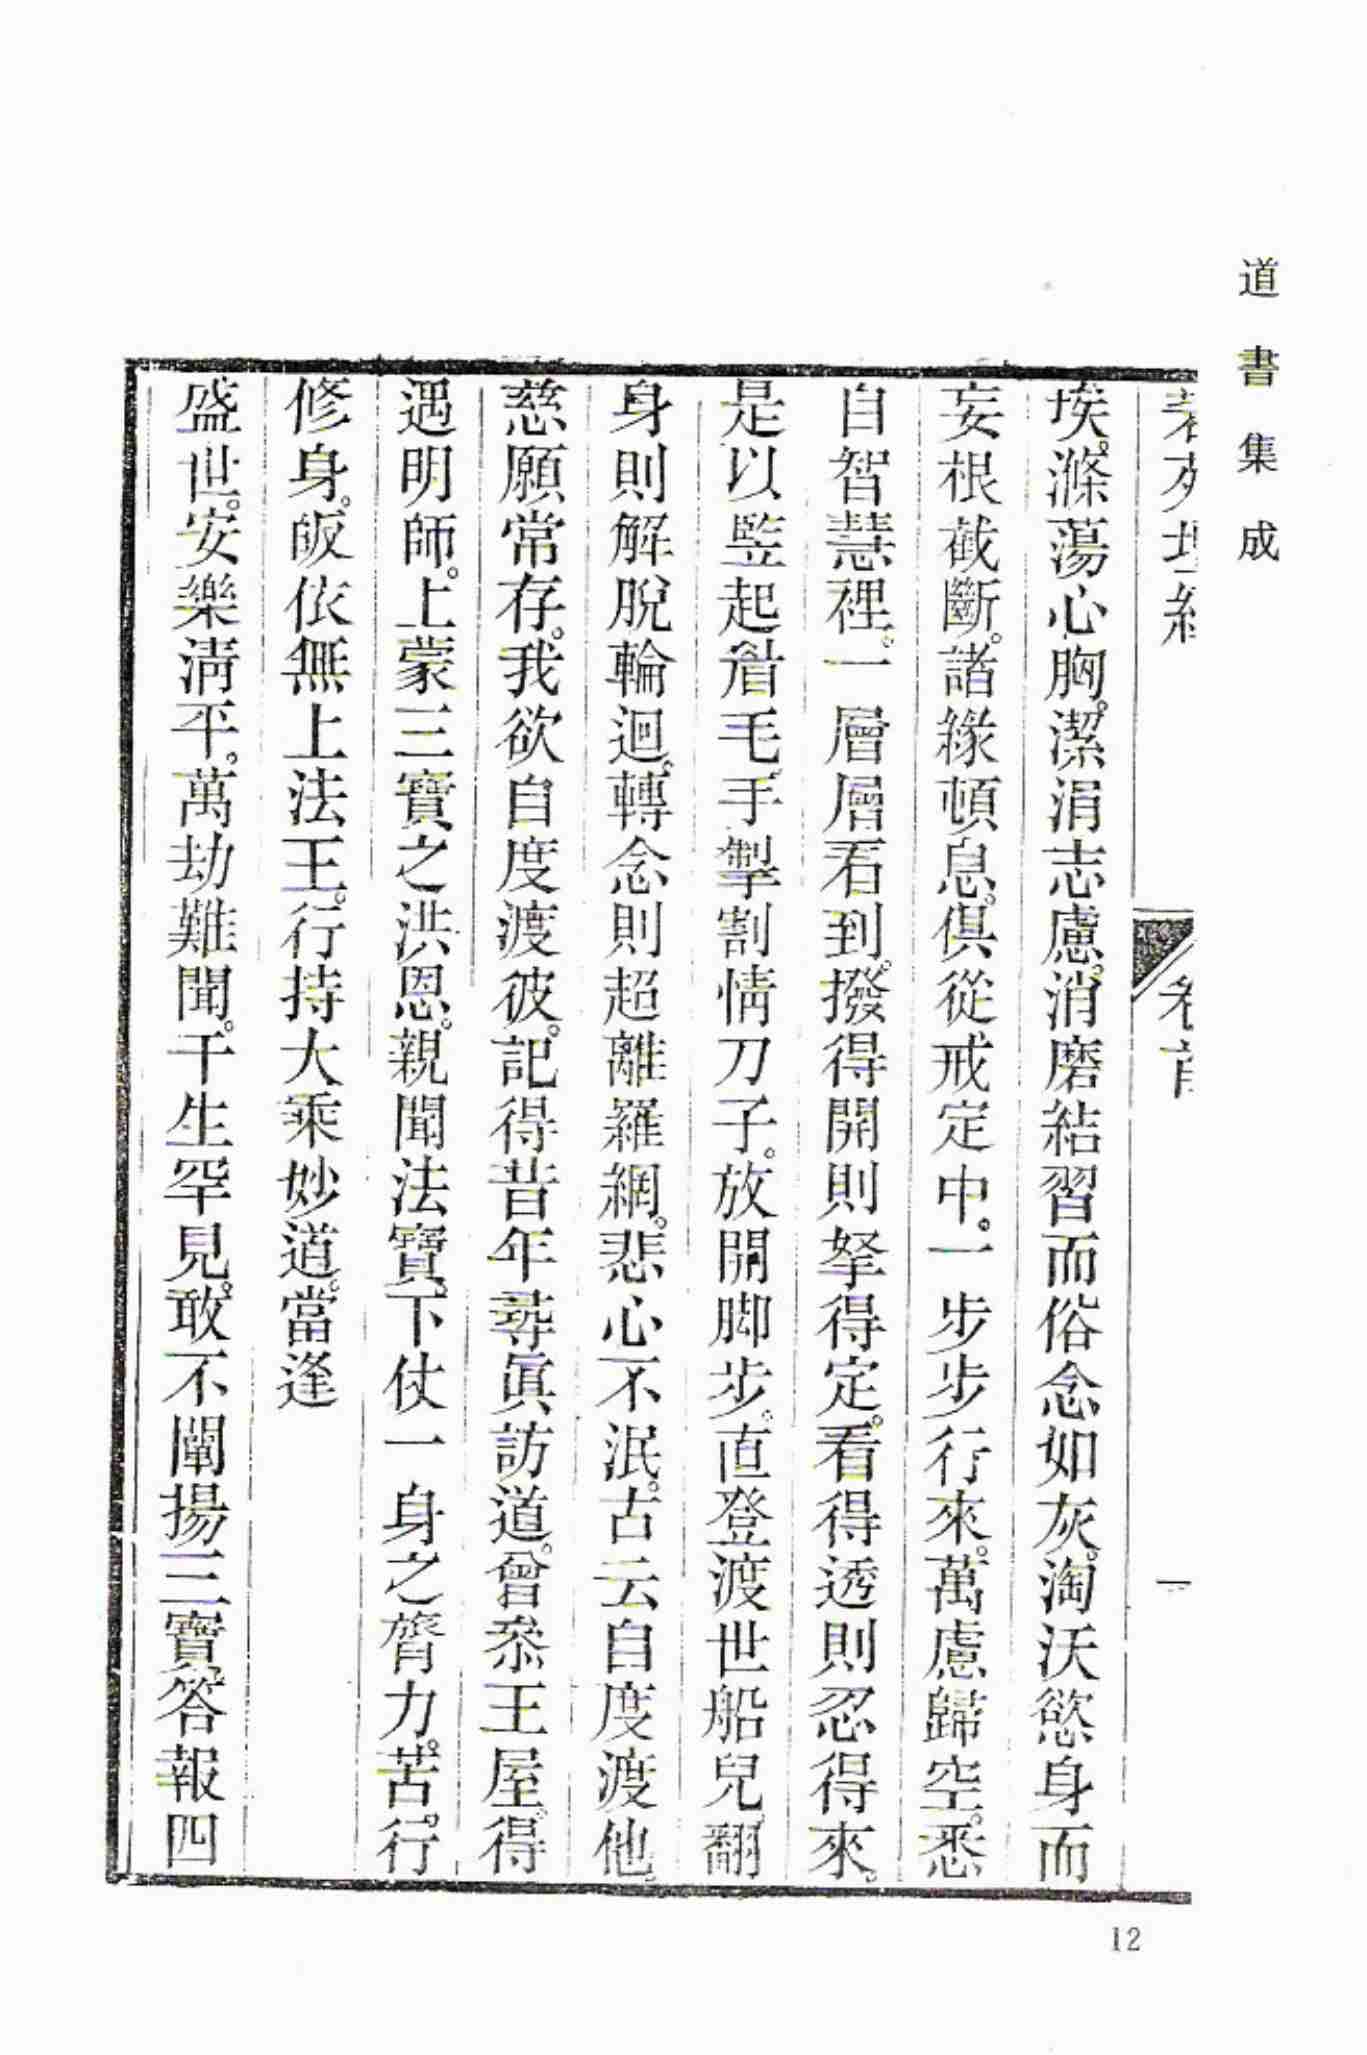 道書集成
卷首
一
埃。滌蕩心胸。潔涓志慮。消磨結習而俗念如灰。淘沃慾身而
妄根截斷。諸緣頓息。俱從戒定中。一步步行來。萬慮歸空。悉
自智慧裡。一層層看到。撥得開則拏得定。看得透則忍得來。
是以豎起眉毛。手掣割情刀子。放開脚步。直登渡世船兒。翻
身則解脫輪迴。轉念則超離羅網。悲心不泯。古云自度渡他。
慈願常存。我欲自度渡彼。記得昔年尋眞訪道。曾叅王屋。得
遇明師。上蒙三寶之洪恩。親聞法寶。下仗一身之膂力。苦行
修身。皈依無上法王。行持大乘妙道。當逢
盛世。安樂淸平。萬劫難聞。千生罕見。敢不闡揚三寶。答報四
12